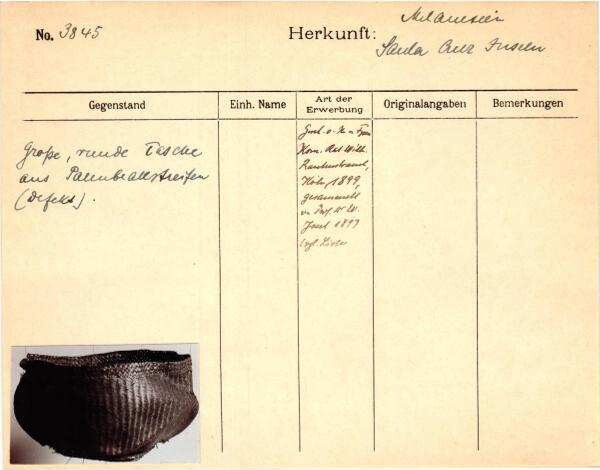 No. 3845
Herkunft: Melanesien
Santa Cruz Inseln
Gegenstand
Einh. Name
Art der
Erwerbung
Originalangaben
Bemerkungen
Große, runde Tasche
aus Palmblattstreifen
(defekt).
Gesch. v. H. u. Frau
Kom. Rat Wilh.
Rautenstrauch,
Köln, 1899,
gesammelt
1897